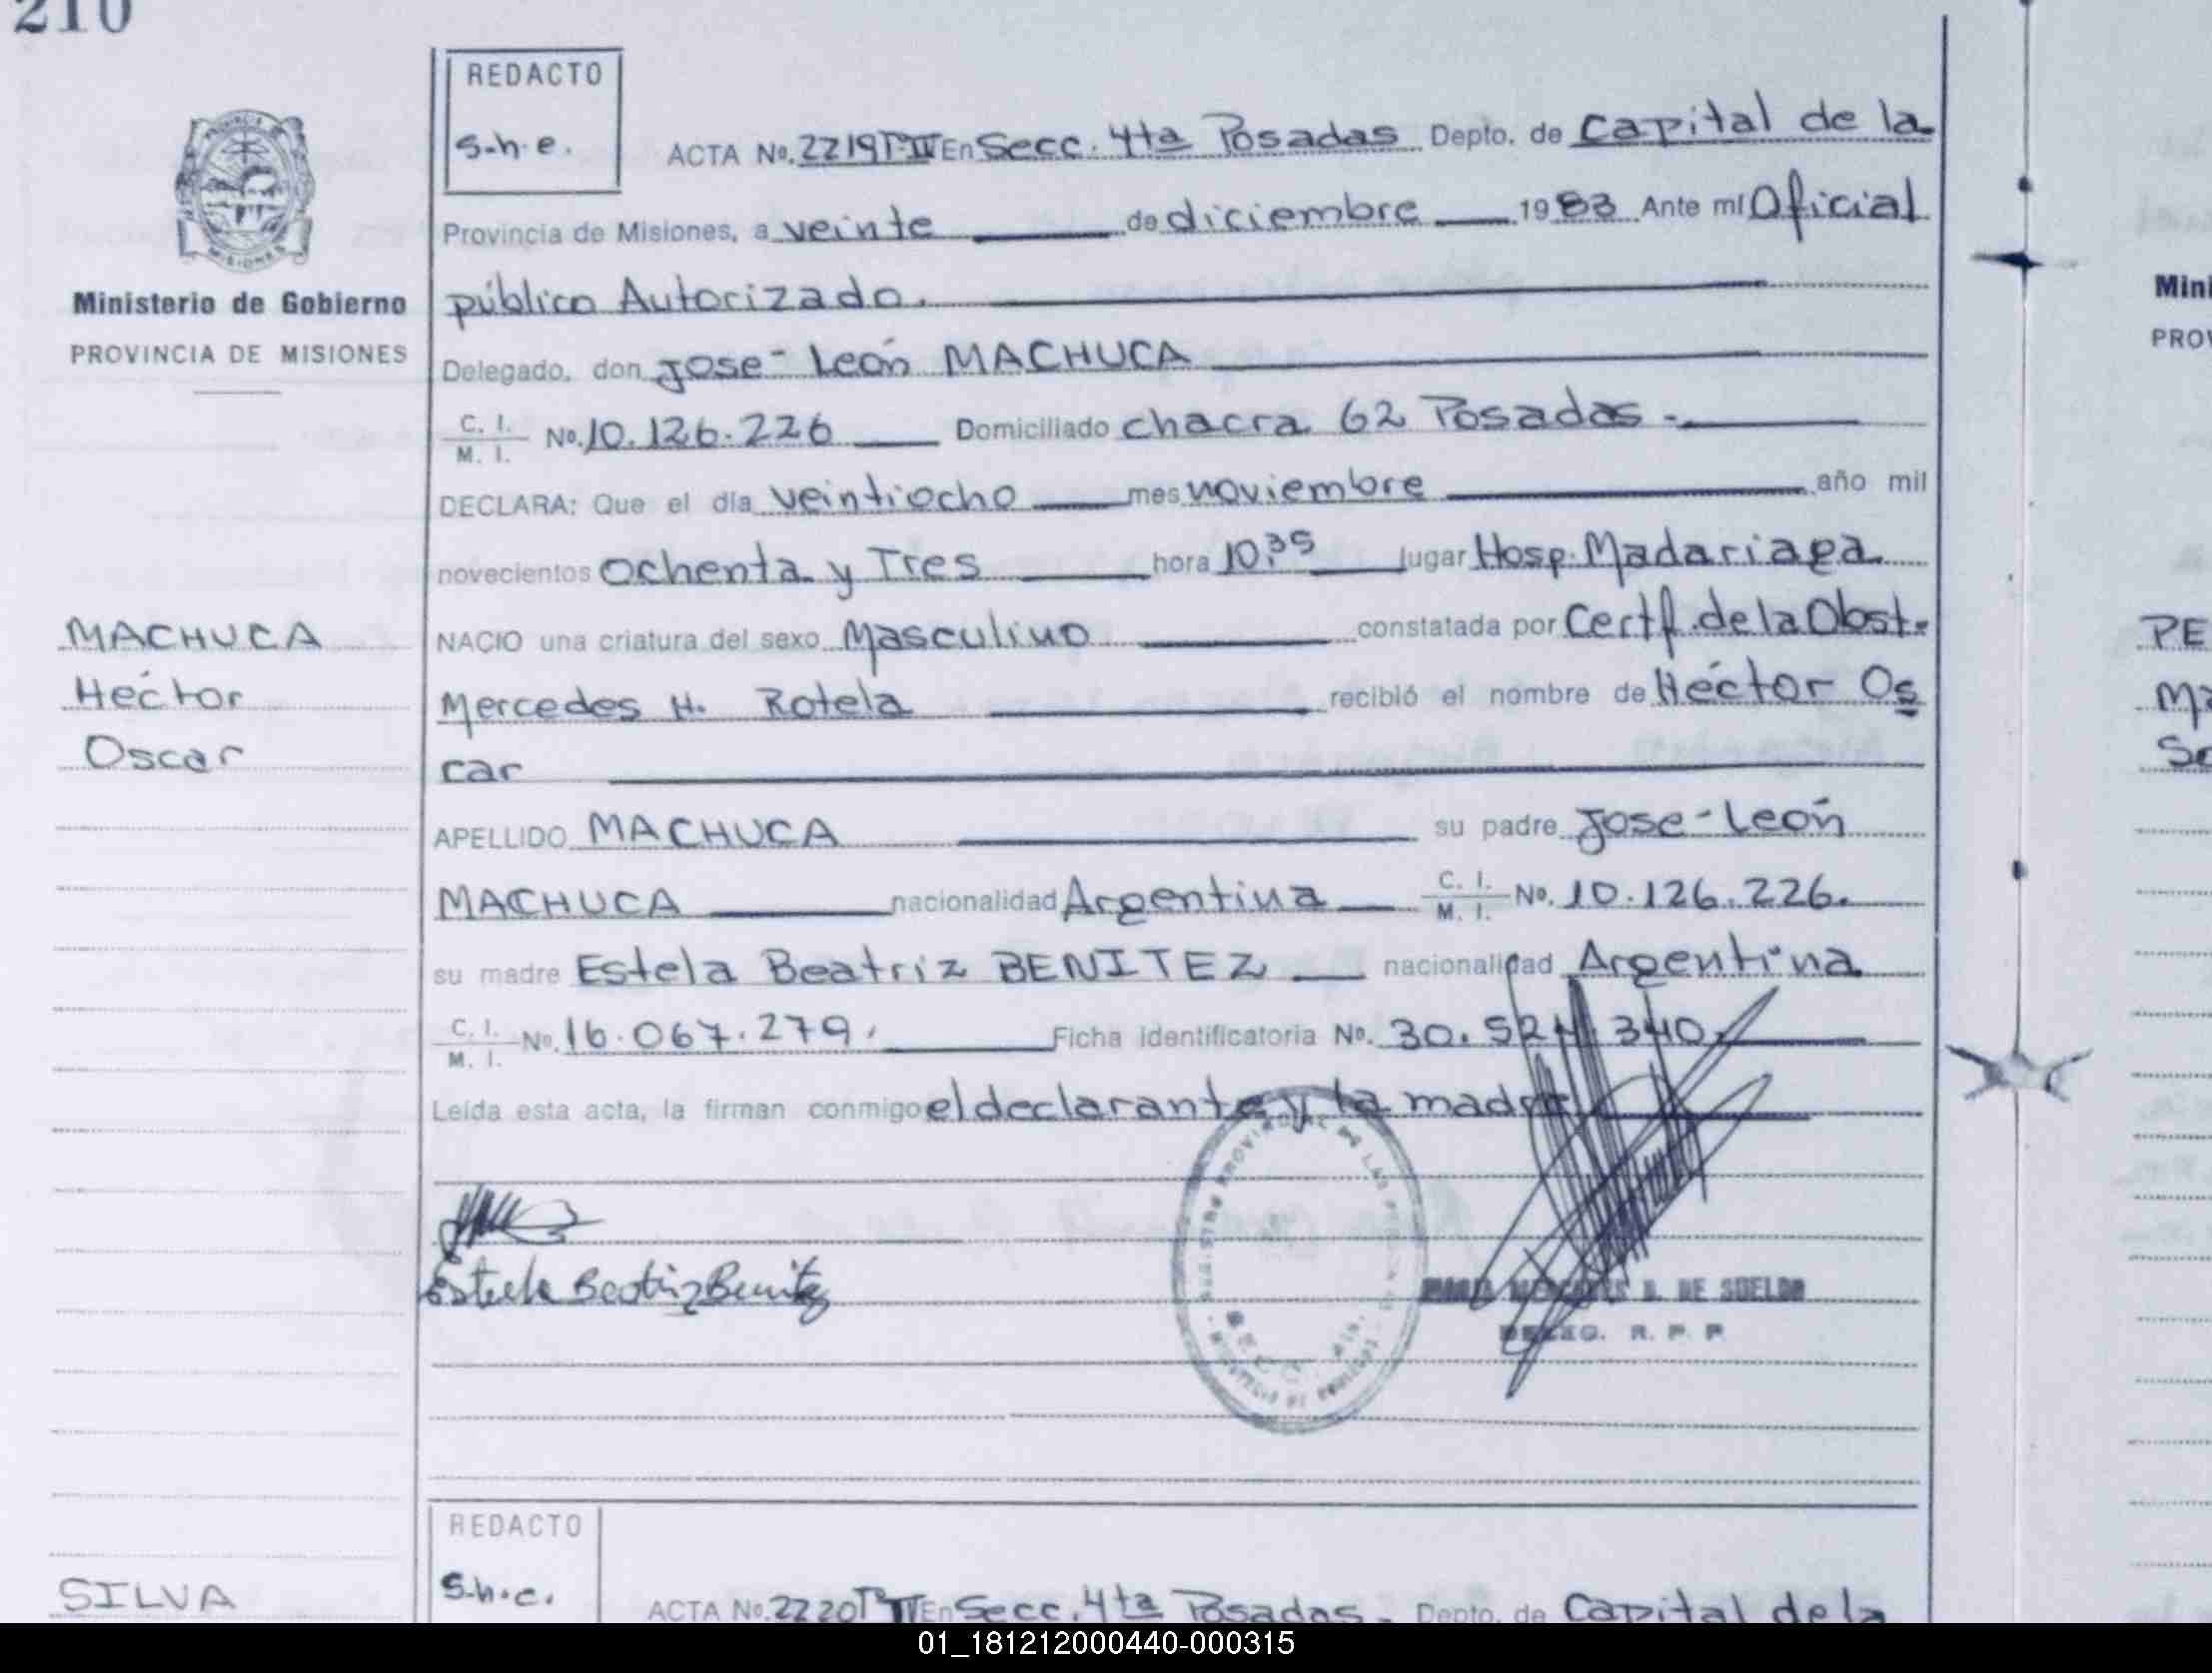 210
REDACTO
s.h.e.
ACTA No. 2219 T-II En Secc. 4ta Posadas Depto. de Capital de la
Provincia de Misiones, a veinte de diciembre 1983 Ante mí Oficial
público Autorizado.
Delegado, don Jose-León MACHUCA
C. I.
M. I. No. 10.126.226 Domiciliado chacra 62 Posadas.-
DECLARA: Que el día veintiocho mes noviembre año mil
novecientos ochenta y Tres hora 10:35 lugar Hosp. Madariaga
NACIO una criatura del sexo Masculino constatada por Certf. de la Obst.
Mercedes H. Rotela recibió el nombre de Héctor Os
car
APELLIDO MACHUCA su padre Jose-León
MACHUCA nacionalidad Argentina C. I.
M. I. No. 10.126.226.
su madre Estela Beatriz BENITEZ nacionalidad Argentina
C. I.
M. I. No. 16.067.279. Ficha identificatoria No. 30.524.340.
Leída esta acta, la firman conmigo el declarante y la madre
Estela Beatriz Benitez
DE SUELDO
R. P. P.
PROVINCIA DE
MISIONES
Ministerio de Gobierno
PROVINCIA DE MISIONES
MACHUCA
Héctor
Oscar
REDACTO
s.h.e.
ACTA No. 2220 T-II En Secc. 4ta Posadas. Depto. de Capital de la
SILVA
Mini
PROV
PE
Ma
01_181212000440-000315